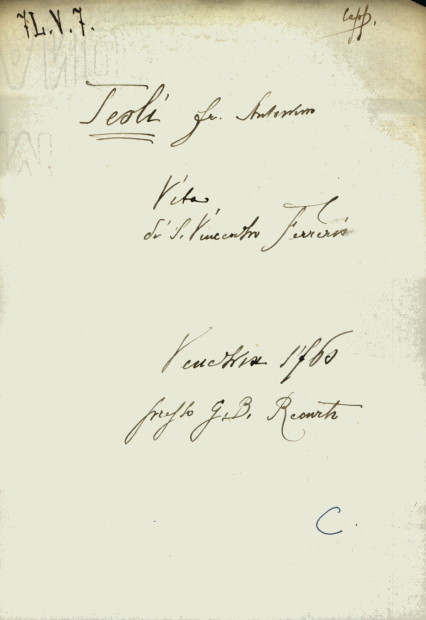 7L.V.7.
Capp.
Teoli fr. Antonino
Vita
di S. Vincenzo Ferreri
Venezia 1760
presso G.B. Recurti
C.